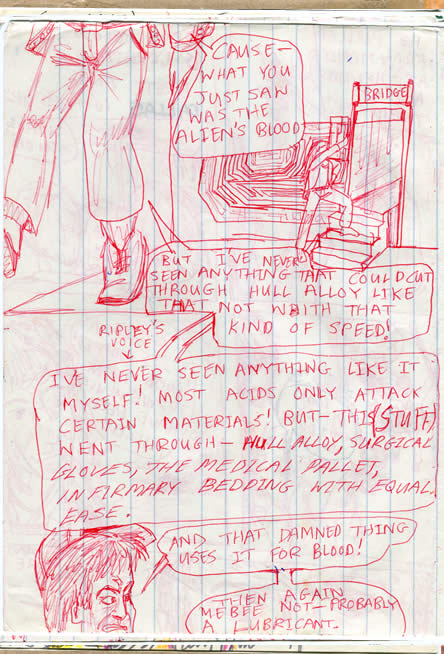 CAUSE-
WHAT YOU
JUST SAW
WAS THE
ALIEN'S BLOOD
BRIDGE
BUT I'VE NEVER
SEEN ANYTHING THAT COULD CUT
THROUGH HULL ALLOY LIKE
THAT NOT WHITH THAT
KIND OF SPEED!
RIPLEY'S
VOICE
I'VE NEVER SEEN ANYTHING LIKE IT
MYSELF! MOST ACIDS ONLY ATTACK
CERTAIN MATERIALS! BUT-THIS (STUFF)
WENT THROUGH- HULL ALLOY, SURGICAL
GLOVES, THE MEDICAL PALLET,
INFIRMARY BEDDING WITH EQUAL
EASE.
AND THAT DAMNED THING
USES IT FOR BLOOD!
THEN AGAIN
MEBEE NOT-PROBABLY
A LUBRICANT.